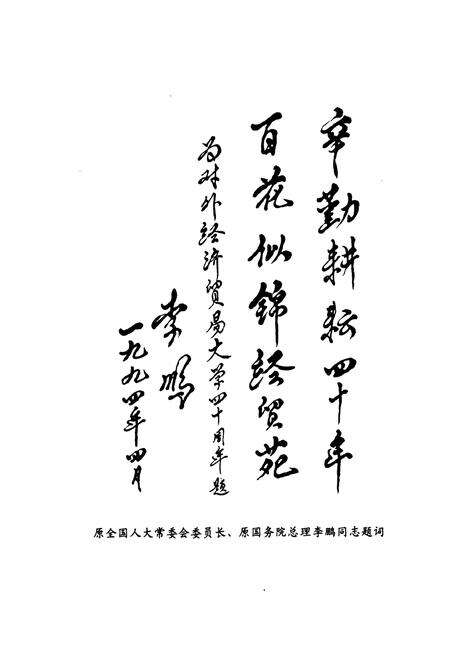 辛勤耕耘四十年
百花似锦经贸苑
为对外经济贸易大学四十周年题
李鹏
一九九四年四月
原全国人大常委会委员长、原国务院总理李鹏同志题词